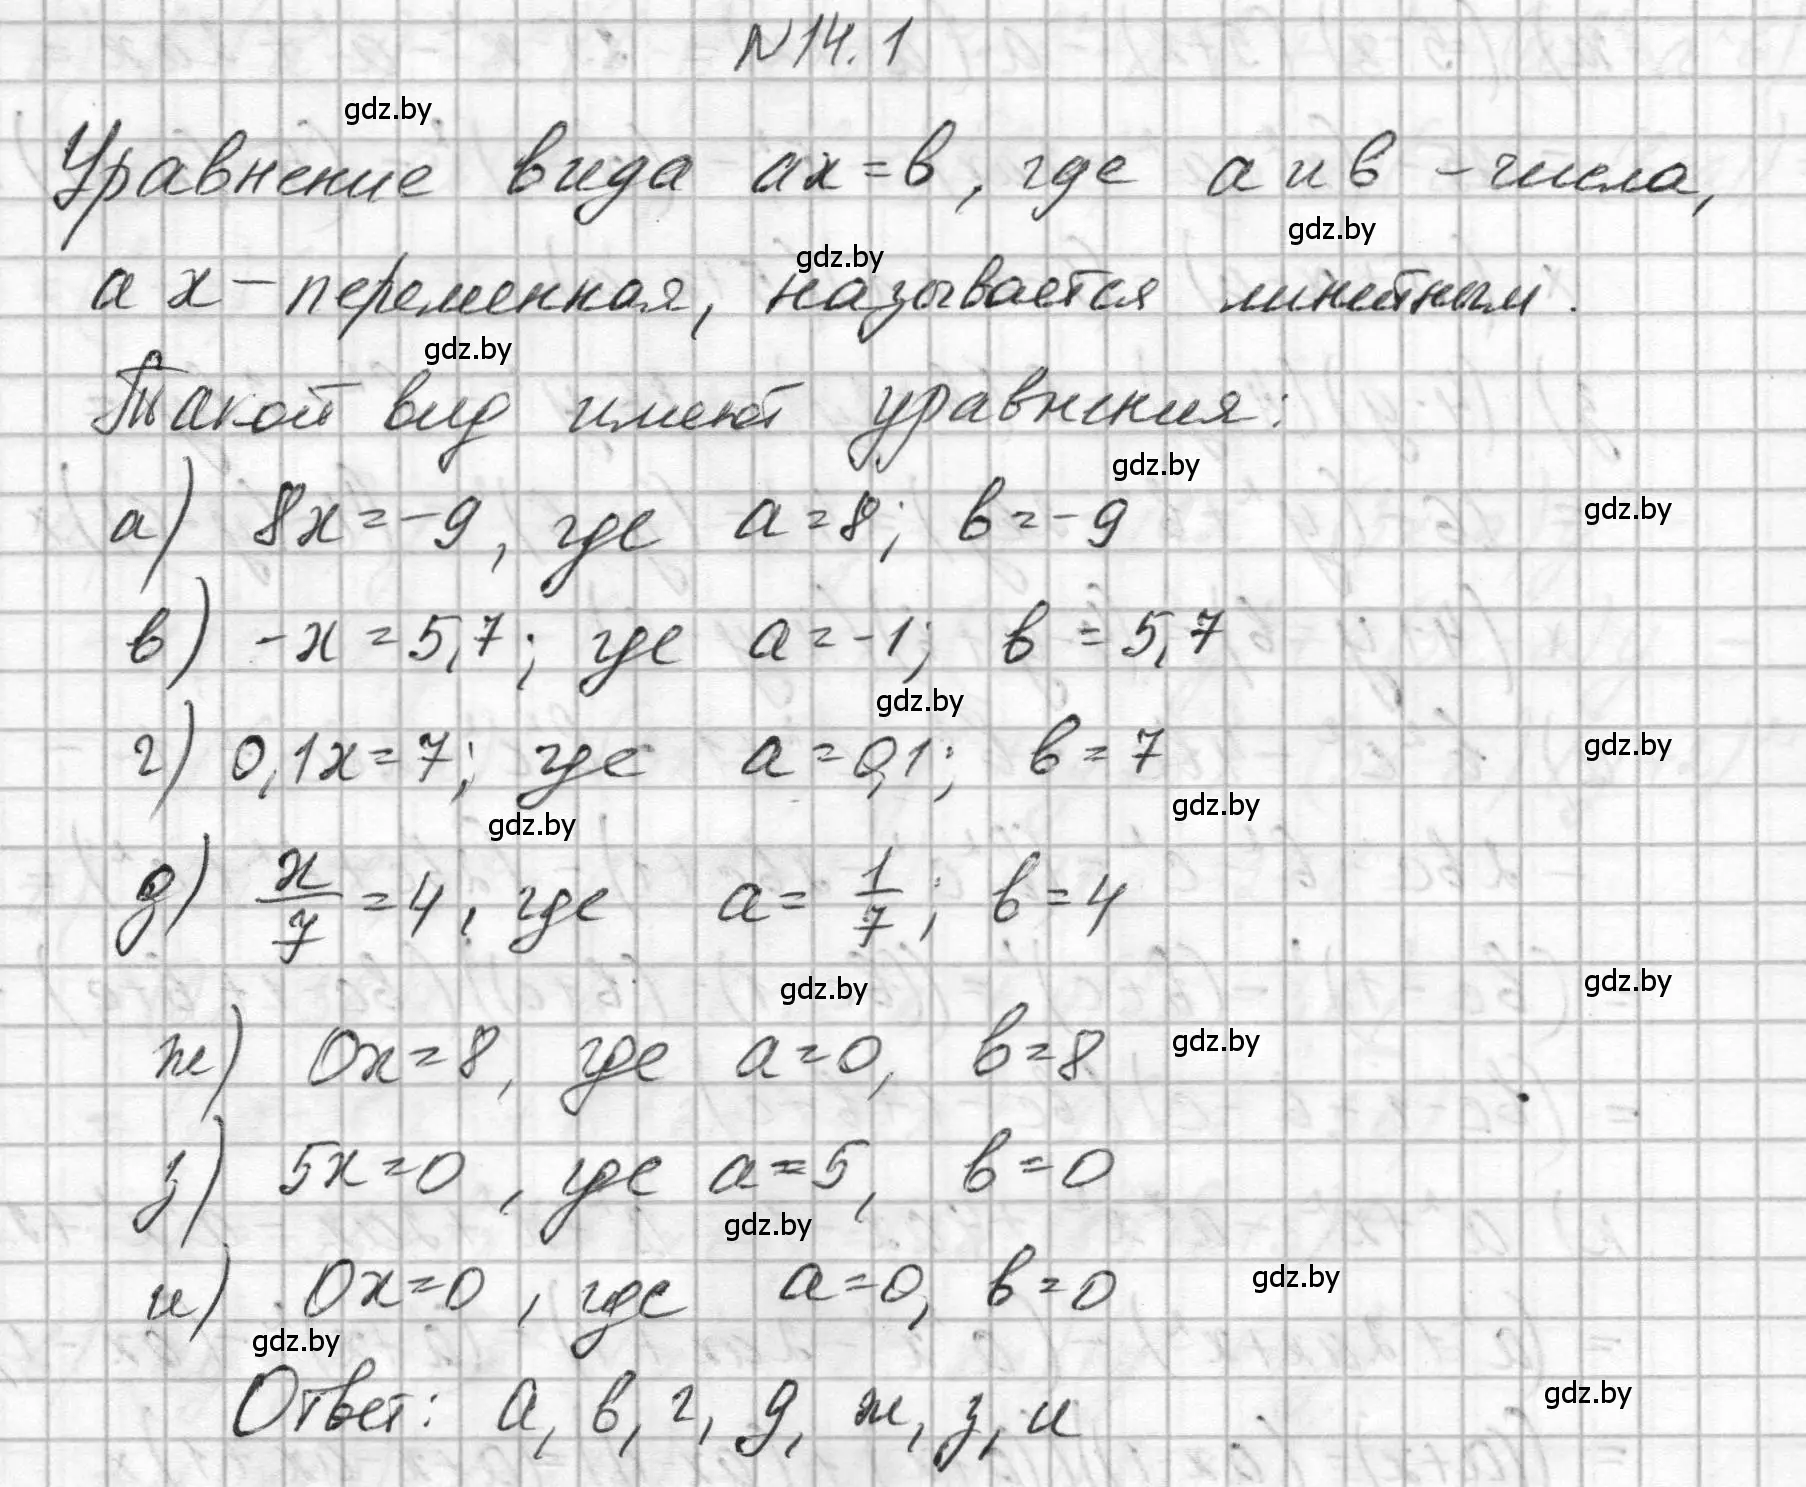 N14.1
gdz.by
Уравнение вида ах=в, где а и в - числа,
gdz.by
gdz.by
а х - переменная, называется линейным.
gdz.by
Такой вид имеют уравнения:
gdz.by
а) 8х=-9, где а=8; в=-9
gdz.by
в) -х=5,7; где а=-1; в=5,7
gdz.by
г) 0,1х=7; где а=0,1; в=7
gdz.by
gdz.by
gdz.by
д) х/7=4, где а=1/7; в=4
gdz.by
gdz.by
ж) 0х=8, где а=0, в=8
gdz.by
з) 5х=0, где а=5, в=0
gdz.by
и) 0х=0, где а=0, в=0
gdz.by
gdz.by
Ответ: а, в, г, д, ж, з, и
gdz.by